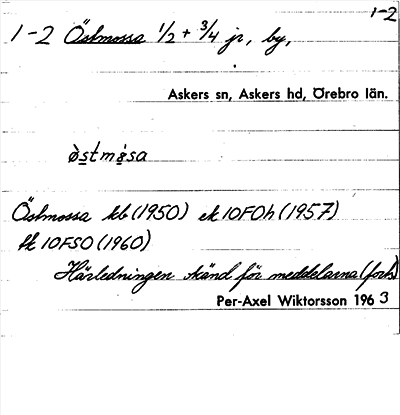 1-2
1-2 Östmossa 1/2 + 3/4 jr, by,
Askers sn, Askers hd, Örebro län.
ö̀stmå̀sa
Östmossa kb (1950) ek 10F0h (1957)
fk 10FSO (1960)
Härledningen känd för meddelarna (forts)
Per-Axel Wiktorsson 1963